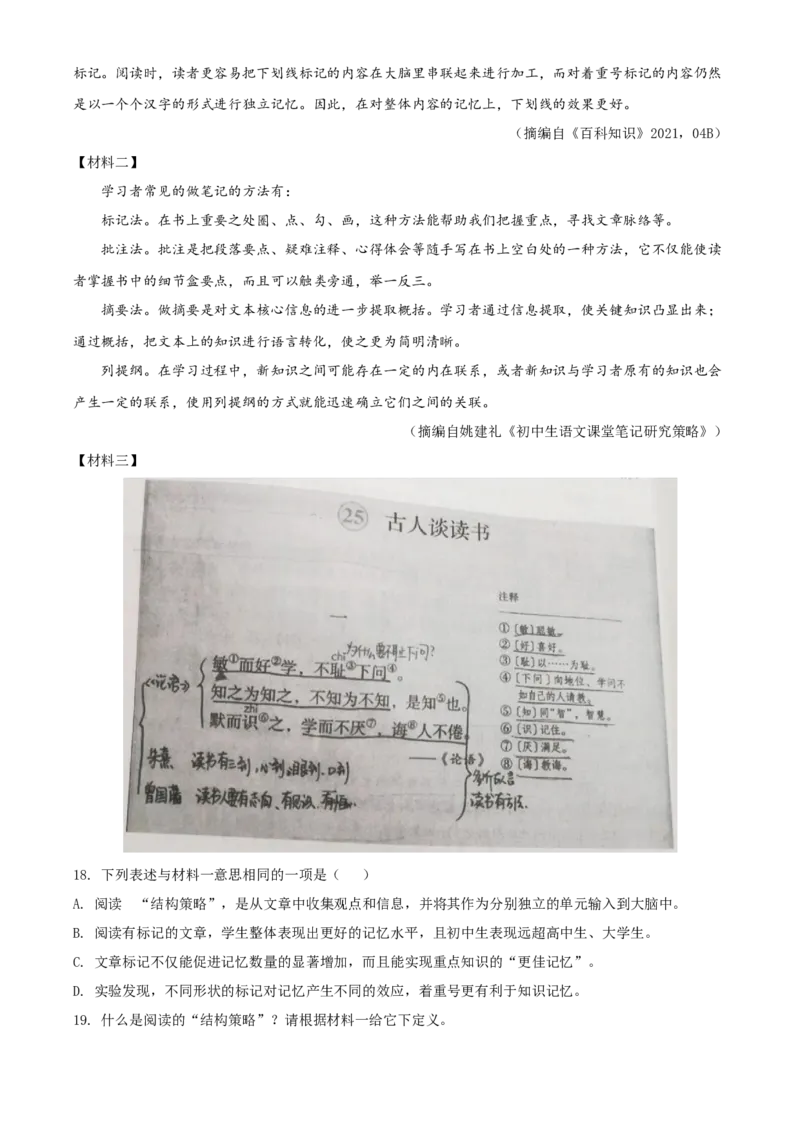 标记。阅读时，读者更容易把下划线标记的内容在大脑里串联起来进行加工，而对着重号标记的内容仍然
是以一个个汉字的形式进行独立记忆。因此，在对整体内容的记忆上，下划线的效果更好。
（摘编自《百科知识》2021，04B）
【材料二】
学习者常见的做笔记的方法有：
标记法。在书上重要之处圈、点、勾、画，这种方法能帮助我们把握重点，寻找文章脉络等。
批注法。批注是把段落要点、疑难注释、心得体会等随手写在书上空白处的一种方法，它不仅能使读
者掌握书中的细节盒要点，而且可以触类旁通，举一反三。
摘要法。做摘要是对文本核心信息的进一步提取概括。学习者通过信息提取，使关键知识凸显出来；
通过概括，把文本上的知识进行语言转化，使之更为简明清晰。
列提纲。在学习过程中，新知识之间可能存在一定的内在联系，或者新知识与学习者原有的知识也会
产生一定的联系，使用列提纲的方式就能迅速确立它们之间的关联。
（摘编自姚建礼《初中生语文课堂笔记研究策略》）
【材料三】
25 古人谈读书
一
为什么要不耻下问？
chǐ
《论语》
敏①而好②学，不耻③下问④。
知之为知之，不知为不知，是知⑤也。
zhì
默而识⑥之，学而不厌⑦，诲⑧人不倦。
——《论语》
朱熹 读书有三到，心到、眼到、口到
曾国藩 读书人要有志向、有见识、有恒心
读书有方法.
注释
①〔敏〕聪敏。
②〔好〕喜好。
③〔耻〕以……为耻。
④〔下问〕向地位、学问不
如自己的人请教。
⑤〔知〕同“智”，智慧。
⑥〔识〕记住。
⑦〔厌〕满足。
⑧〔诲〕教诲。
18. 下列表述与材料一意思相同的一项是（ ）
A. 阅读 “结构策略”，是从文章中收集观点和信息，并将其作为分别独立的单元输入到大脑中。
B. 阅读有标记的文章，学生整体表现出更好的记忆水平，且初中生表现远超高中生、大学生。
C. 文章标记不仅能促进记忆数量的显著增加，而且能实现重点知识的“更佳记忆”。
D. 实验发现，不同形状的标记对记忆产生不同的效应，着重号更有利于知识记忆。
19. 什么是阅读的“结构策略”？请根据材料一给它下定义。